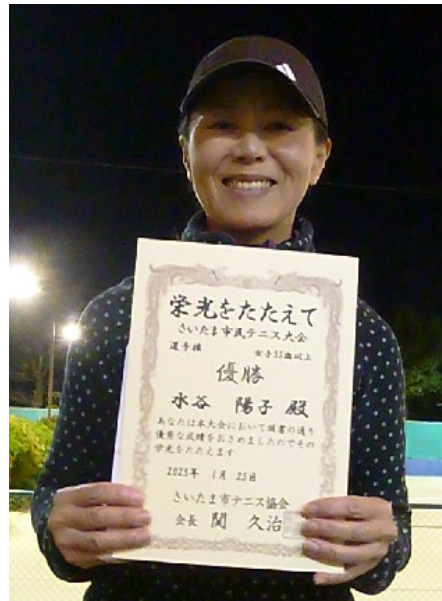 栄光をたたえて
さいたま市民テニス大会
選手権 女子55歳以上
優勝
水谷 陽子 殿
あなたは本大会において頭書の通り
優秀な成績をおさめましたのでその
栄光をたたえます
2025年 1月 25日
さいたま市テニス協会
会長 関 久治